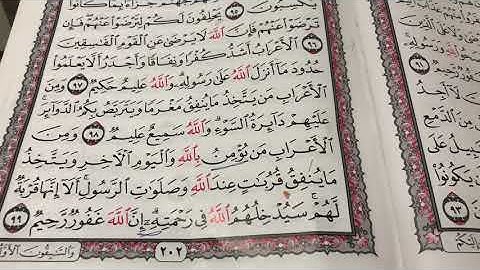 جَزَآءًۢ بِمَا كَانُوا۟
يَكْسِبُونَ ٩٥ يَحْلِفُونَ لَكُمْ لِتَرْضَوْا۟ عَنْهُمْ فَإِن
تَرْضَوْا۟ عَنْهُمْ فَإِنَّ ٱللَّهَ لَا يَرْضَىٰ عَنِ ٱلْقَوْمِ ٱلْفَٰسِقِينَ
٩٦ ٱلْأَعْرَابُ أَشَدُّ كُفْرًا وَنِفَاقًا وَأَجْدَرُ أَلَّا يَعْلَمُوا۟
حُدُودَ مَآ أَنزَلَ ٱللَّهُ عَلَىٰ رَسُولِهِۦ وَٱللَّهُ عَلِيمٌ حَكِيمٌ ٩٧ وَمِنَ
ٱلْأَعْرَابِ مَن يَتَّخِذُ مَا يُنفِقُ مَغْرَمًا وَيَتَرَبَّصُ بِكُمُ ٱلدَّوَآئِرَ
عَلَيْهِمْ دَآئِرَةُ ٱلسَّوْءِ وَٱللَّهُ سَمِيعٌ عَلِيمٌ ٩٨ وَمِنَ
ٱلْأَعْرَابِ مَن يُؤْمِنُ بِٱللَّهِ وَٱلْيَوْمِ ٱلْءَاخِرِ وَيَتَّخِذُ
مَا يُنفِقُ قُرُبَٰتٍ عِندَ ٱللَّهِ وَصَلَوَٰتِ ٱلرَّسُولِ أَلَآ إِنَّهَا قُرْبَةٌ
لَّهُمْ سَيُدْخِلُهُمُ ٱللَّهُ فِى رَحْمَتِهِۦٓ إِنَّ ٱللَّهَ غَفُورٌ رَّحِيمٌ ٩٩
٢٠٢
وَٱلسَّٰبِقُونَ